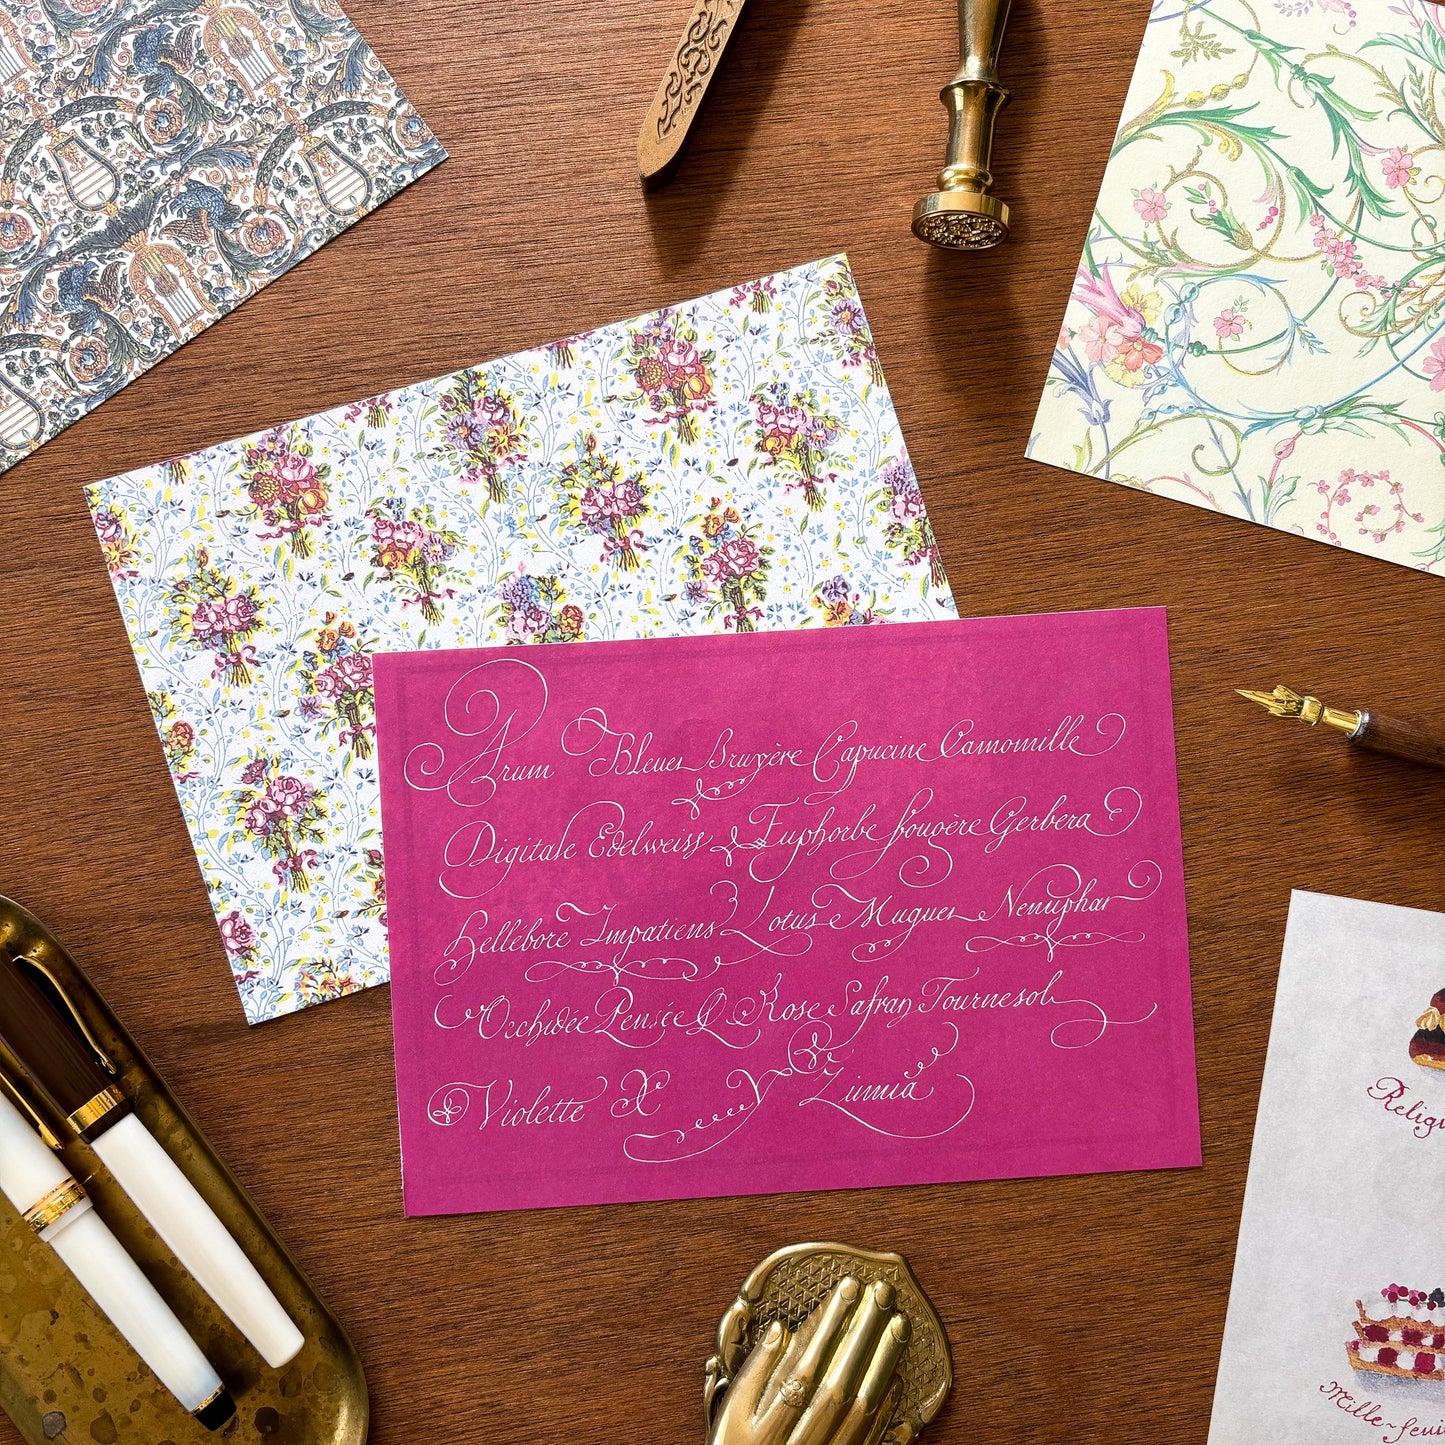 Arum Bleuet Bruyère Capucine Camomille
Digitale Edelweiss & Euphorbe Fougère Gerbera
Hellébore Impatiens Lotus Muguet Nénuphar
Orchidée Pensée Q Rose Safran Tournesol
Violette X Y Zinnia
Religi
Mille-feui